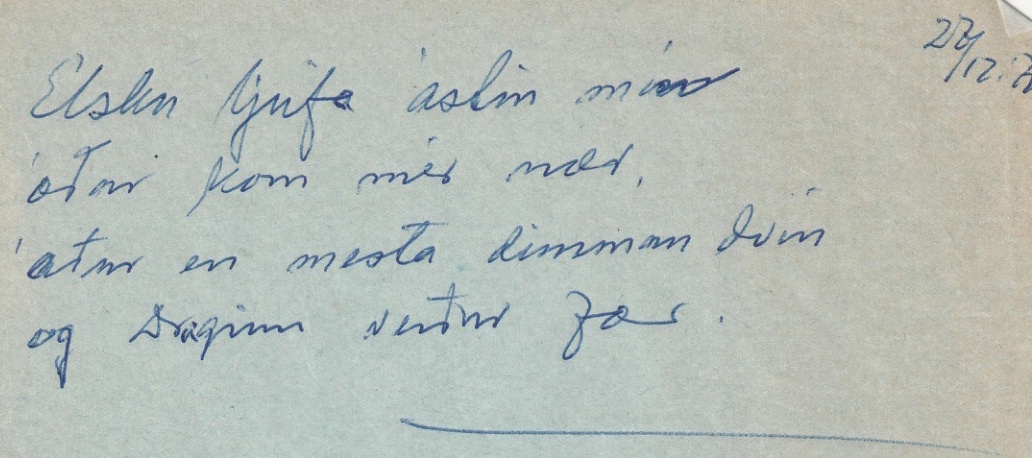 27/12.7
Elsku ljúfa ástin mín
áðar kom mér nær,
áður en mesta dimman dvín
og Daginn verður fær.